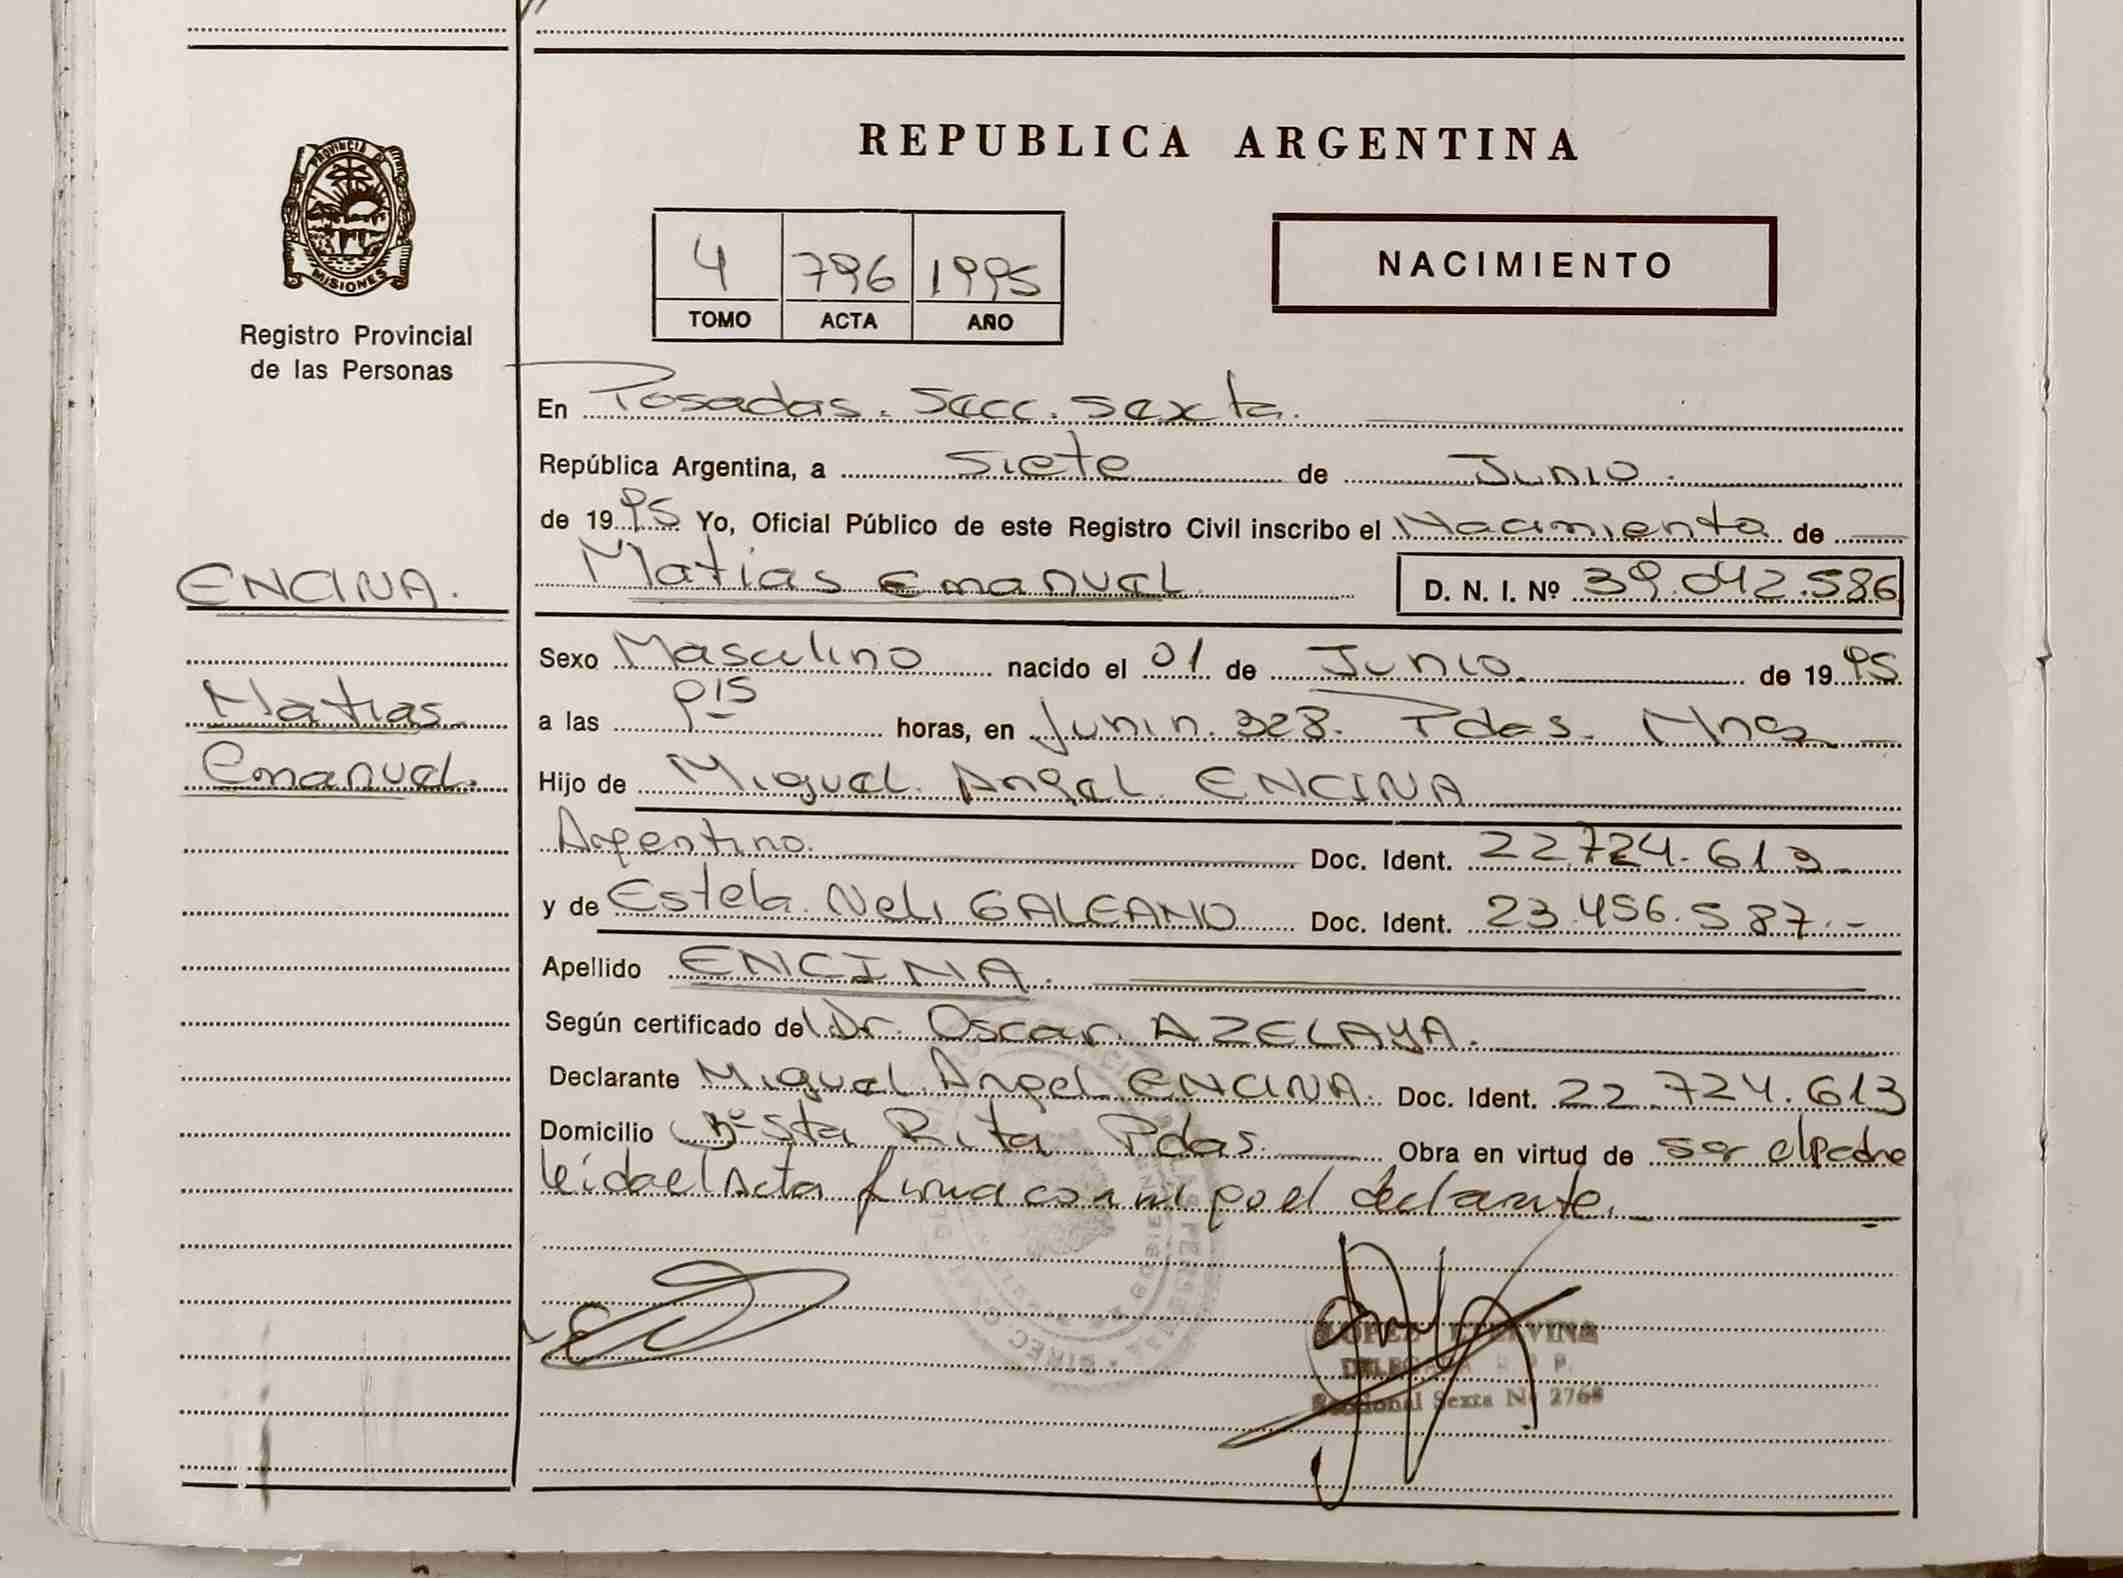 REPUBLICA ARGENTINA
PROVINCIA DE
MISIONES
Registro Provincial
de las Personas
4 796 1995
TOMO ACTA AÑO
NACIMIENTO
En Posadas. Secc. Sexta.
República Argentina, a siete de Junio.
de 1995 Yo, Oficial Público de este Registro Civil inscribo el Nacimiento de
ENCINA.
Matías Emanuel D. N. I. Nº 39.042.586
Sexo Masculino nacido el 01 de Junio de 1995
Matías
Emanuel.
a las 015 horas, en Junin. 328. Pdas. Mnes
Hijo de Miguel Angel ENCINA
Argentino. Doc. Ident. 22.724.613
y de Estela Neli GALEANO Doc. Ident. 23.456.587.-
Apellido ENCINA.
Según certificado del Dr. Oscar AZELAYA.
Declarante Miguel Angel ENCINA. Doc. Ident. 22.724.613
Domicilio Bº Sta Rita Pdas. Obra en virtud de ser el padre
leída el Acta firma con migo el declarante.
Sexta Nº 2768